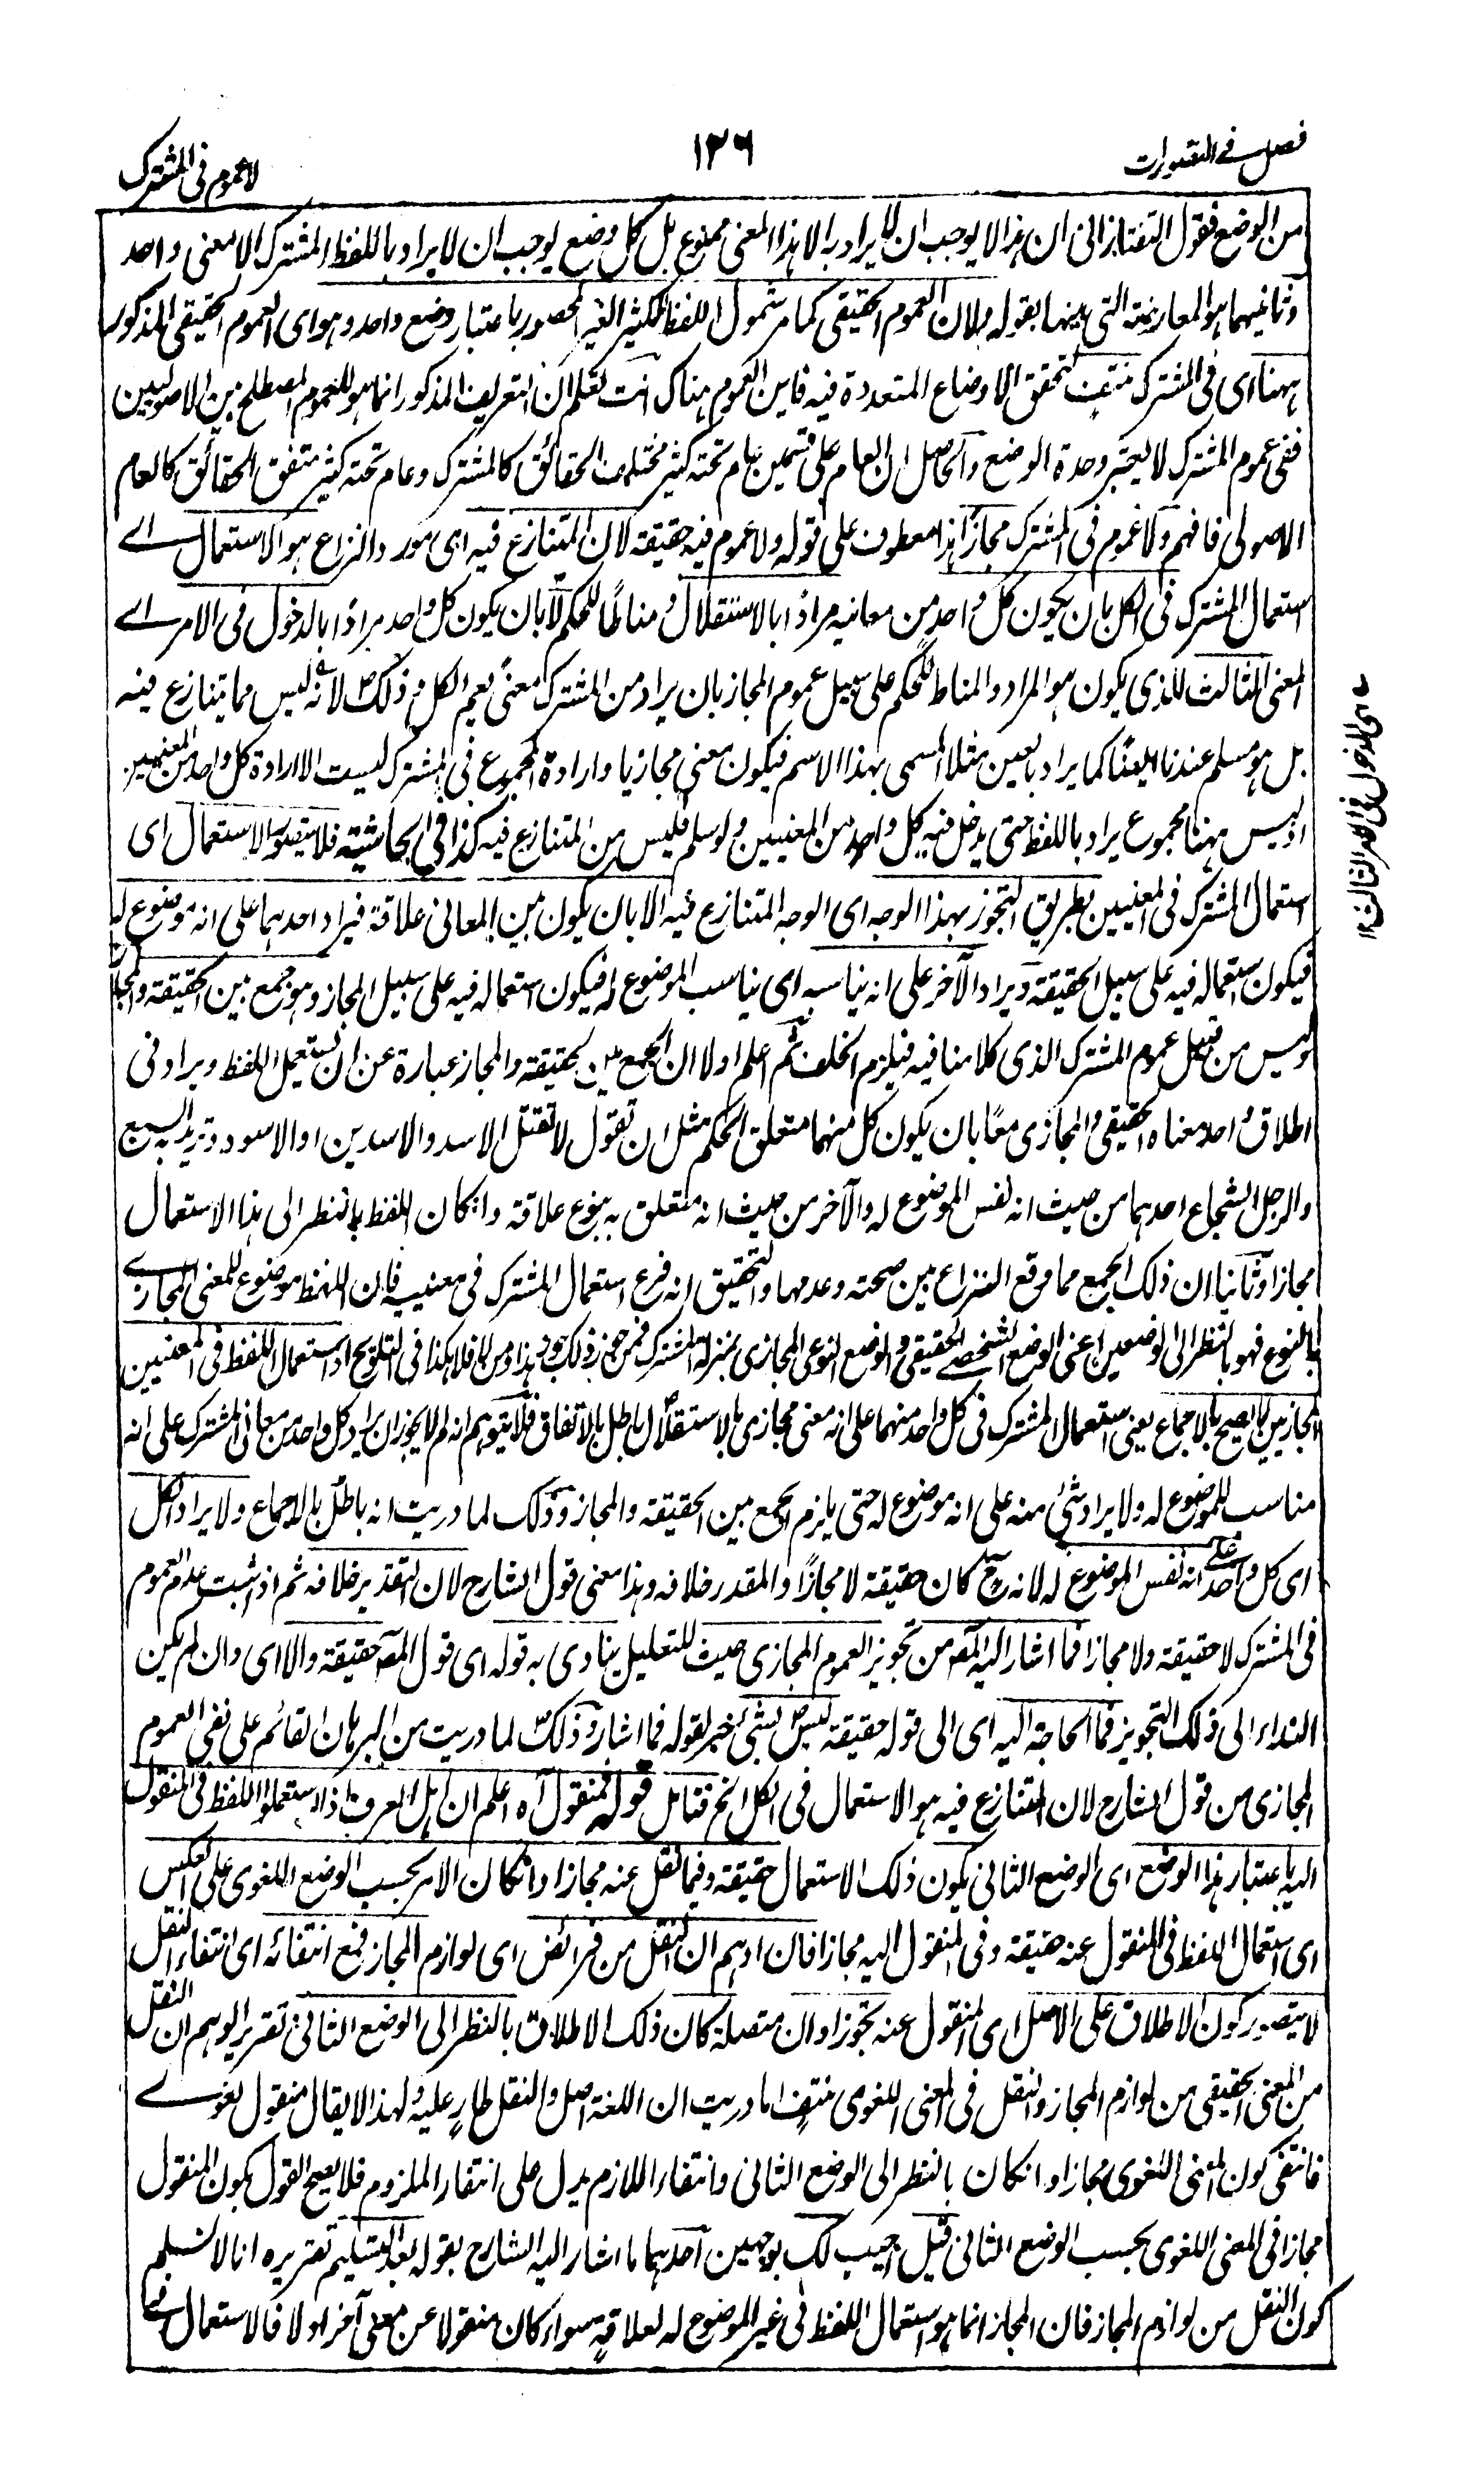 فصل فے التصورات
١٣٦
لا عموم فی المشترک
من الوضع فقول التفتازانی ان هذا لا یوجب ان لا یراد به الا هذا المعنی ممنوع بل کل وضع یوجب ان لا یراد باللفظ المشترک الا معنی واحد
وثانیهما هو المعارضة التی بینها بقوله ولان العموم الحقیقی کما مر شمول اللفظ لکثیر الغیر المحصور باعتبار وضع واحد وهو ای العموم الحقیقی المذکور
ههنا ای فی المشترک منتف لتحقق الاوضاع المتعددة فیه فاین العموم هناک انت تعلم ان التعریف المذکور انما هو للعموم المصطلح بین الاصولیین
ففی عموم المشترک لا یعتبر وحدة الوضع والحاصل ان العام علی قسمین عام تحته کثیر مختلف الحقائق کالمشترک وعام تحته کثیر متفق الحقائق کالعام
الاصولی فافهم ولا عموم فی المشترک مجازا هذا معطوف علی قوله ولا عموم فیه حقیقة لان المتنازع فیه ای مورد النزاع هو الاستعمال اے
استعمال المشترک فی الکل بان یکون کل واحد من معانیه مرادًا بالاستقلال ومناطًا للحکم لا بان یکون کل واحد مرادًا بالدخول فی الامر اے
المعنی الثالث الذی یکون هو المراد والمناط للحکم علی سبیل عموم المجاز بان یراد من المشترک معنًی یعم الکل وذلک لانه لیس مما یتنازع فیه
بل هو مسلم عندنا ایضًا کما یراد بالعین مثلا المسمی بهذا الاسم فیکون معنی مجازیا وارادة المجموع فی المشترک لیست الا ارادة کل واحد من المعنیین
اذ لیس ههنا مجموع یراد باللفظ حتی یدخل فیه کل واحد من المعنیین ولو سلم فلیس من المتنازع فیه کذا فی الحاشیة فلا یتصور الاستعمال ای
استعمال المشترک فی المعنیین بطریق التجوز بهذا الوجه ای الوجه المتنازع فیه الا بان یکون بین المعانی علاقة فیراد احدهما علی انه موضوع له
فیکون استعماله فیه علی سبیل الحقیقة ویراد الآخر علی انه یناسبه ای یناسب الموضوع له فیکون استعماله فیه علی سبیل المجاز وهو جمع بین الحقیقة والمجاز
ولیس من قبیل عموم المشترک الذی کلامنا فیه فیلزم الخلف ثم اعلم اولا ان الجمع بین الحقیقة والمجاز عبارة عن ان یستعمل اللفظ ویراد فی
اطلاق واحد معناه الحقیقی والمجازی معًا بان یکون کل منهما متعلق الحکم مثل ان تقول لا تقتل الاسد والاسدین او الاسود وترید السبع
والرجل الشجاع احدهما من حیث انه نفس الموضوع له والآخر من حیث انه متعلق به بنوع علاقة وانکان اللفظ بالنظر الی هذا الاستعمال
مجازا وثانیا ان ذلک الجمع مما وقع النزاع بین صحته وعدمها والتحقیق انه فرع استعمال المشترک فی معنییه فان اللفظ موضوع للمعنی المجازے
بالنوع فهو بالنظر الی الوضعین اعنی الوضع الشخصے الحقیقی والوضع النوعی المجازی بمنزلة المشترک فمن جوز ذلک جوز هذا ومن لا فلا هکذا فی التلویح او استعمال اللفظ فی المعنیین
المجازیین لا یصح بالاجماع یعنی استعمال المشترک فی کل واحد منهما علی انه معنی مجازی بالاستقلال باطل بالاتفاق فلا یتوهم انه لم لا یجوز ان یراد کل واحد من معانی المشترک علی انه
مناسب للموضوع له ولا یراد شئ منه علی انه موضوع له حتی یلزم الجمع بین الحقیقة والمجاز وذلک لما دریت انه باطل بالاجماع ولا یراد الکل
ای کل واحد علی انه نفس الموضوع له لانه ح کان حقیقة لا مجازًا والمقدر خلافه وهذا معنی قول الشارح لان التقدیر خلافه ثم اذا ثبت عدم العموم
فی المشترک لا حقیقة ولا مجازا فما اشار الیه المصـ من تجویز العموم المجازی حیث للتعلیل ینادی به قوله ای قول المصـ حقیقة والا ای وان لم یکن
النداء الی ذلک التجویز فما الحاجة الیه ای الی قوله حقیقة لیس بشئ خبر لقوله فما اشار وذلک لما دریت من البرهان القائم علی نفی العموم
المجازی من قول الشارح لان المتنازع فیه هو الاستعمال فی الکل الخ فتامل قوله فمنقول آه اعلم ان اهل العرف اذا استعملوا اللفظ فی المنقول
الیه باعتبار هذا الوضع ای الوضع الثانی یکون ذلک الاستعمال حقیقة وفیما نقل عنه مجازا وانکان الامر بحسب الوضع اللغوی علی العکس
ای استعمال اللفظ فی المنقول عنه حقیقة وفی المنقول الیه مجازا فان اوهم ان النقل من فرائض ای لوازم المجاز فمع انتفائه ای انتفاء النقل
لا یتصور کون الاطلاق علی الاصل ای المنقول عنه تجوزا وان متصلة کان ذلک الاطلاق بالنظر الی الوضع الثانی تقریر الوهم ان النقل
من المعنی الحقیقی من لوازم المجاز والنقل فی المعنی اللغوی منتف لما دریت ان اللغة اصل والنقل طارٍ علیه ولهذا لا یقال منقول لغوے
فانتفی کون المعنی اللغوی مجازا وانکان بالنظر الی الوضع الثانی وانتفاء اللازم یدل علی انتفاء الملزوم فلا یصح القول بکون المنقول
مجازا فی المعنی اللغوی بحسب الوضع الثانی قیل اجیب لک بوجهین احدهما ما اشار الیه الشارح بقوله بعد التسلیم تقریره انا لا نسلم
کون النقل من لوازم المجاز فان المجاز انما هو استعمال اللفظ فی غیر الموضوع له لعلاقة سواء کان منقولا عن معنی آخر اولا فالاستعمال فے
ای الدخول فی الامر الثالث ۱۲